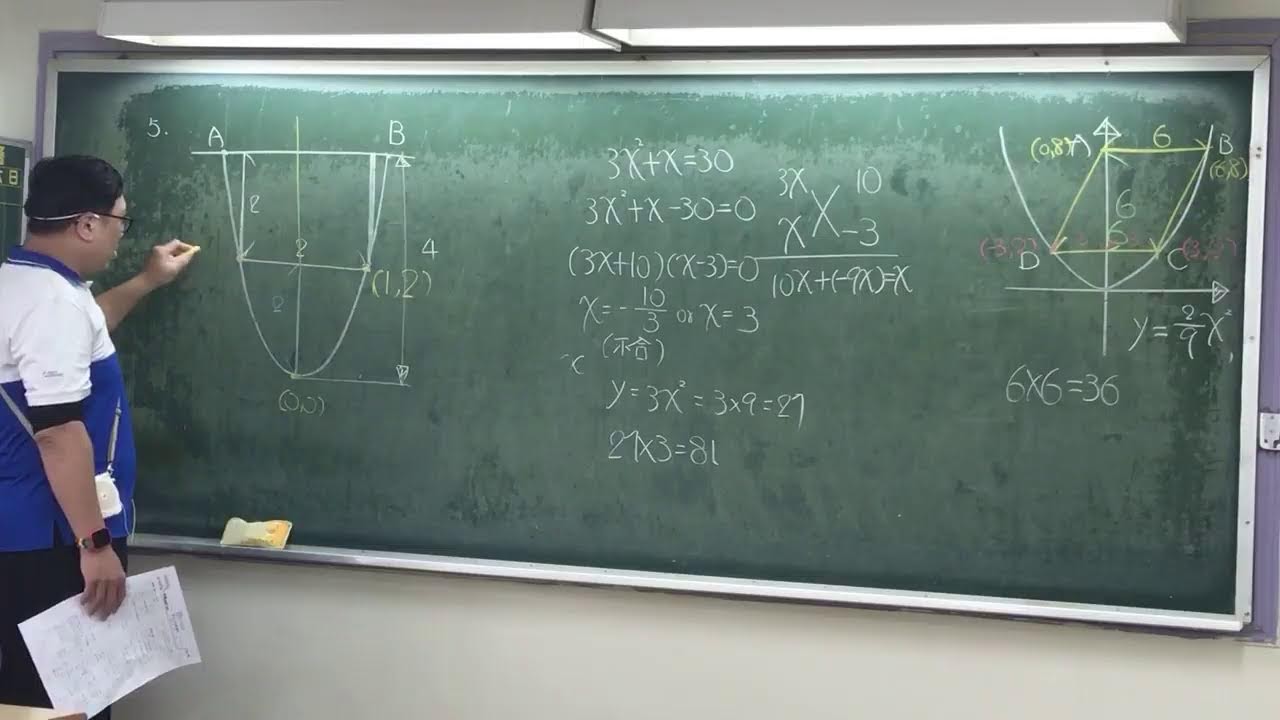 5.
A
B
2
2
4
(1,2)
2
(0,0)
3x²+x=30
3x²+x-30=0
(3x+10)(x-3)=0
x=-10/3 or x=3
(不合)
y=3x²=3×9=27
27×3=81
3x 10
x -3
10x+(-9x)=x
(0,8)A
6
B
(6,8)
6
6
(-3,2)
D
C
(3,2)
y=2/9x²
6×6=36